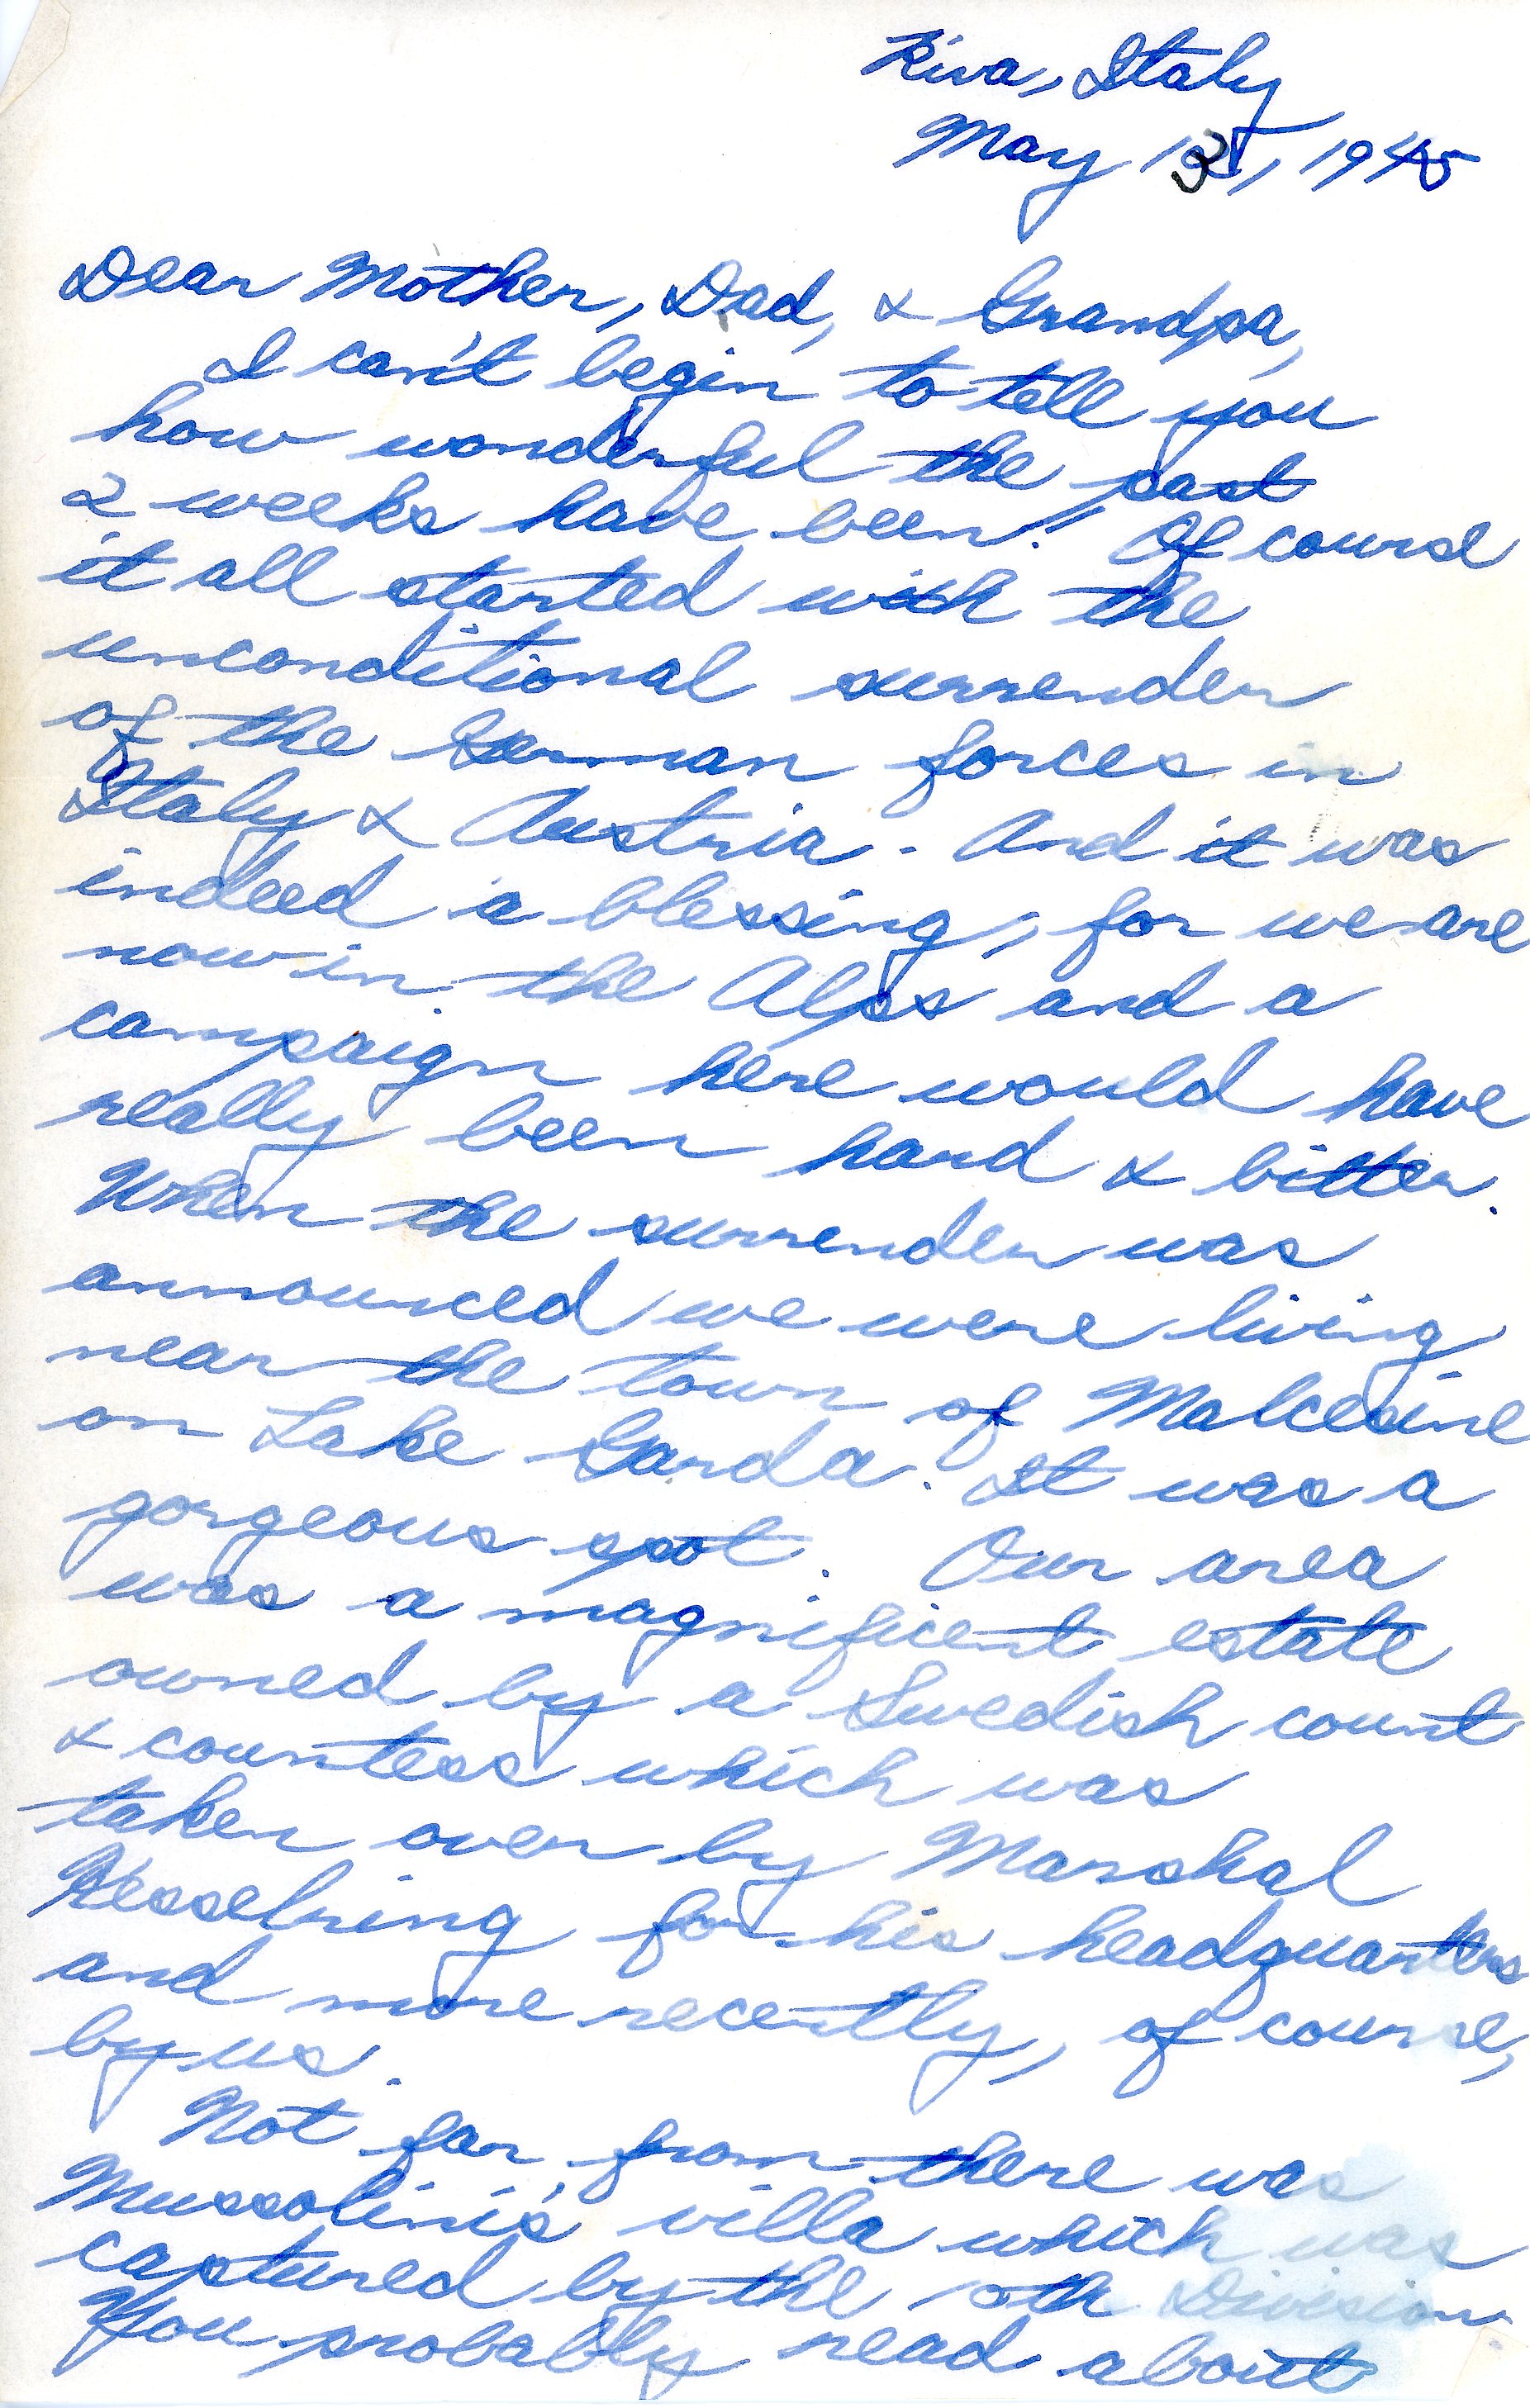 Riva, Italy
May 13, 1945
Dear Mother, Dad, & Grandpa,
I can't begin to tell you
how wonderful the past
2 weeks have been! Of course
it all started with the
unconditional surrender
of the German forces in
Italy & Austria. And it was
indeed a blessing, for we are
now in the Alps and a
campaign here would have
really been hard & bitter.
When the surrender was
announced we were living
near the town of Malcesine
on Lake Garda. It was a
gorgeous spot. Our area
was a magnificent estate
owned by a Swedish count
& countess which was
taken over by Marshal
Kesselring for his headquarters
and more recently, of course,
by us.
Not far from there was
Mussolini's villa which was
captured by the 10th Division.
You probably read about